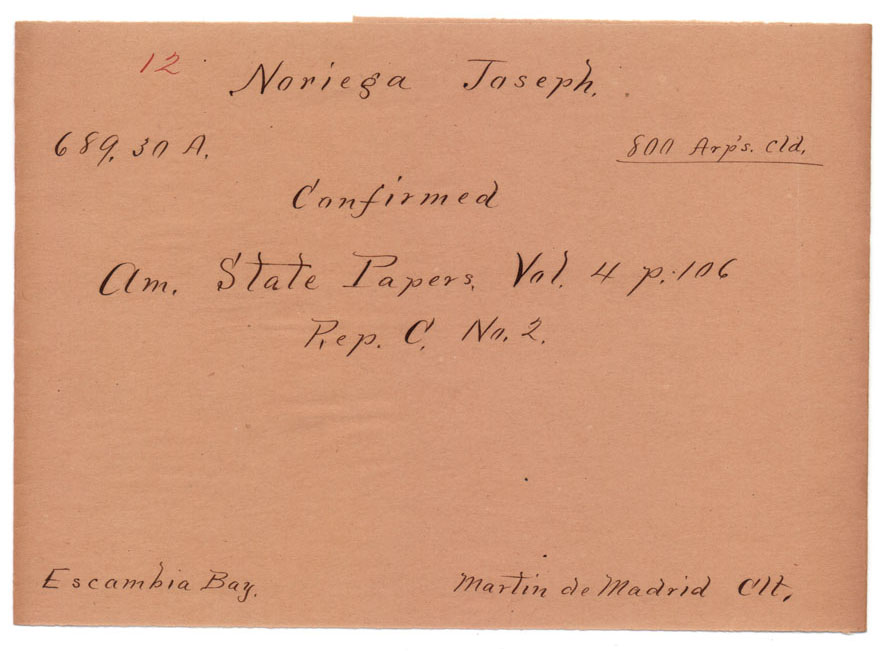 12
Noriega Joseph.
689.30 A. 800 Arp's. Cld.
Confirmed
Am. State Papers, Vol. 4 p. 106
Rep. C. No. 2.
Escambia Bay. Martin de Madrid Clt.